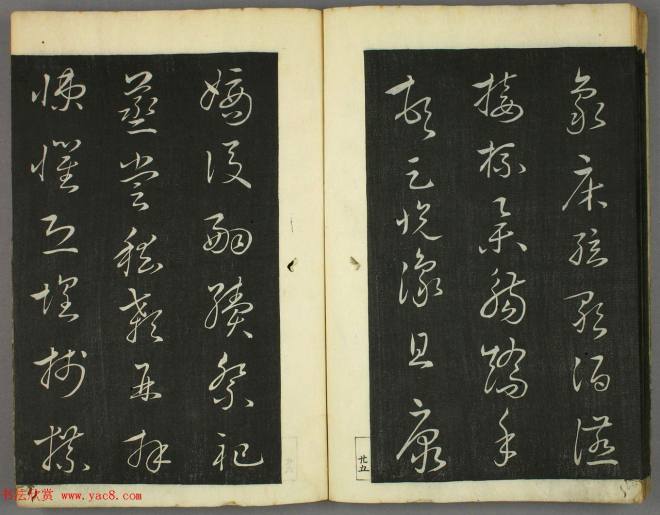 象床弦歌酒讌
接杯舉觴矯手
頓足悅豫且康
嫡後嗣續祭祀
蒸嘗稽顙再拜
悚懼恐惶牋牒
廿五
书法欣赏 www.yac8.com